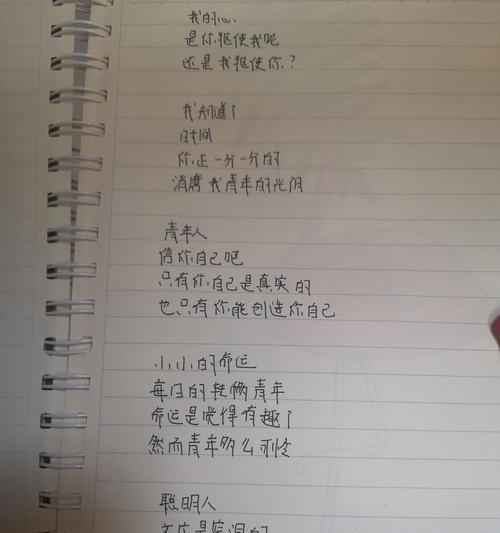 我的心
是你驱使我呢
还是我驱使你？
我知道了
时间
你正一分一分的
消磨我青年的光阴
青年人
信你自己吧
只有你自己是真实的
也只有你能创造你自己
小小的命运
每日的转移青年
命运是觉得有趣了
然而青年多么可怜
聪明人